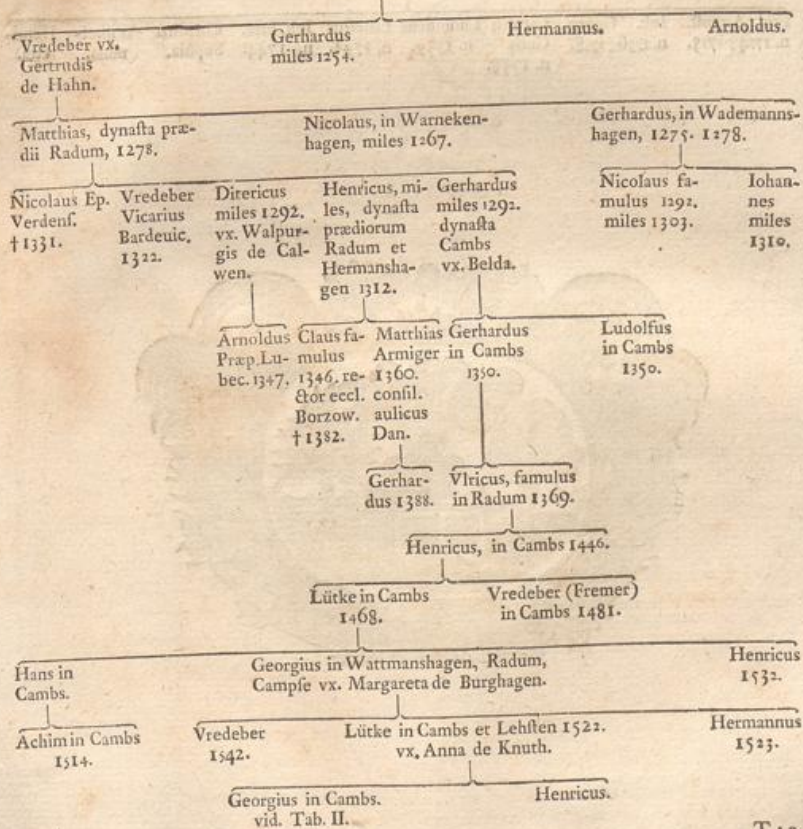 Vredeber vx.
Gertrudis
de Hahn.
Gerhardus
miles 1254.
Hermannus.
Arnoldus.
Matthias, dynaſta præ-
dii Radum, 1278.
Nicolaus, in Warneken-
hagen, miles 1267.
Gerhardus, in Wademanns-
hagen, 1275. 1278.
Nicolaus Ep.
Verdenſ.
† 1331.
Vredeber
Vicarius
Bardeuic.
1322.
Ditericus
miles 1292.
vx. Walpur-
gis de Cal-
wen.
Henricus, mi-
les, dynaſta
prædiorum
Radum et
Hermansha-
gen 1312.
Gerhardus
miles 1292.
dynaſta
Cambs
vx. Belda.
Nicolaus fa-
mulus 1292.
miles 1303.
Iohan-
nes
miles
1310.
Arnoldus
Præp. Lu-
bec. 1347.
Claus fa-
mulus
1346. re-
ctor eccl.
Borzow.
† 1382.
Matthias
Armiger
1360.
conſil.
aulicus
Dan.
Gerhardus
in Cambs
1350.
Ludolfus
in Cambs
1350.
Gerhar-
dus 1388.
Vlricus, famulus
in Radum 1369.
Henricus, in Cambs 1446.
Lütke in Cambs
1468.
Vredeber (Fremer)
in Cambs 1481.
Hans in
Cambs.
Georgius in Wattmanshagen, Radum,
Campſe vx. Margareta de Burghagen.
Henricus
1532.
Achim in Cambs
1514.
Vredeber
1542.
Lütke in Cambs et Lehſten 1522.
vx. Anna de Knuth.
Hermannus
1523.
Georgius in Cambs.
vid. Tab. II.
Henricus.